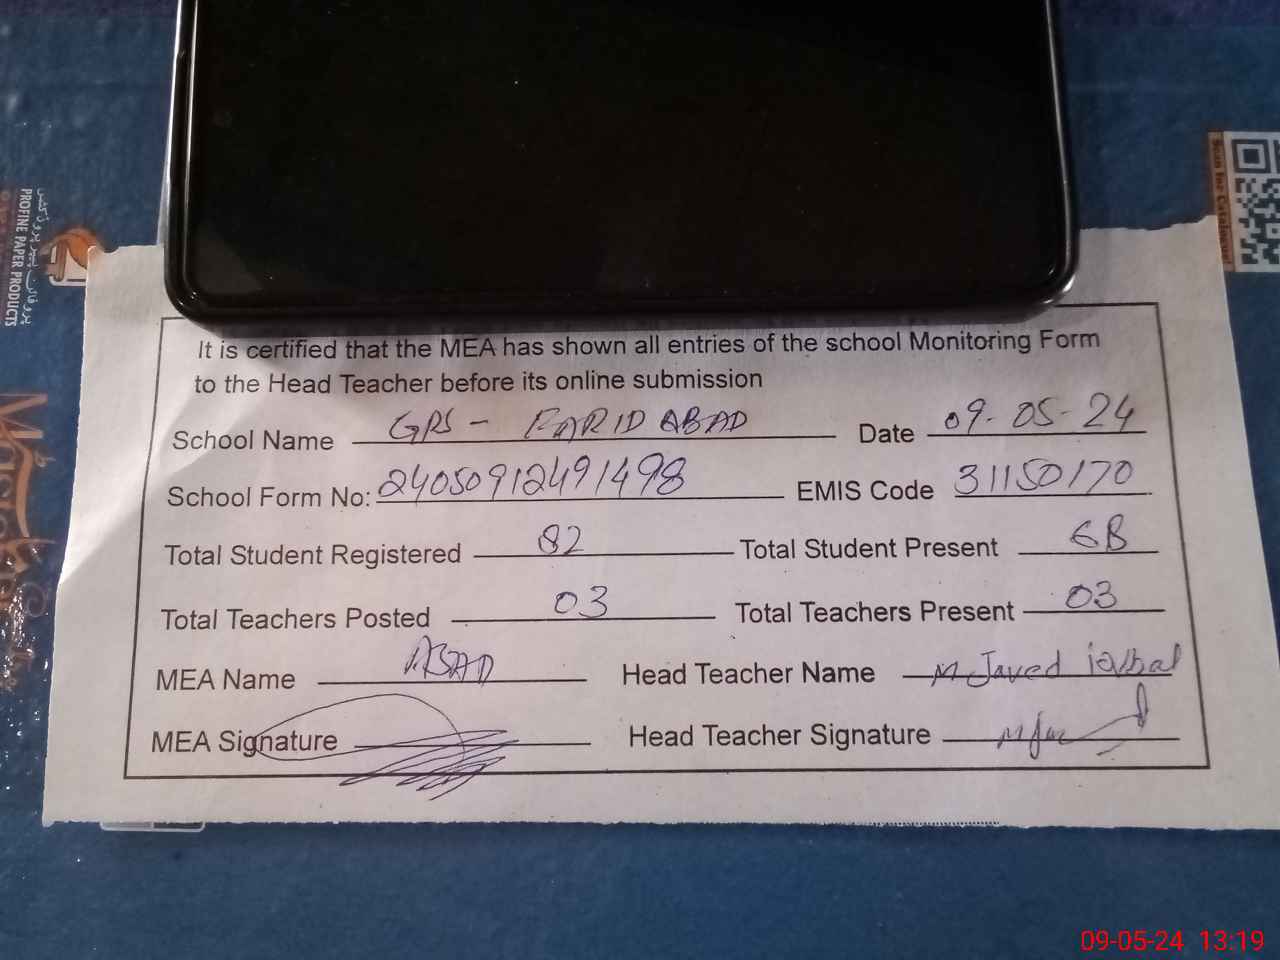 It is certified that the MEA has shown all entries of the school Monitoring Form
to the Head Teacher before its online submission
School Name GPS - FARID ABAD Date 09-05-24
School Form No: 24050912491498 EMIS Code 31150170
Total Student Registered 82 Total Student Present 68
Total Teachers Posted 03 Total Teachers Present 03
MEA Name ASAD Head Teacher Name M Javed iqbal
MEA Signature Head Teacher Signature
PROFINE PAPER PRODUCTS
Scan for Catalogue!
09-05-24 13:19